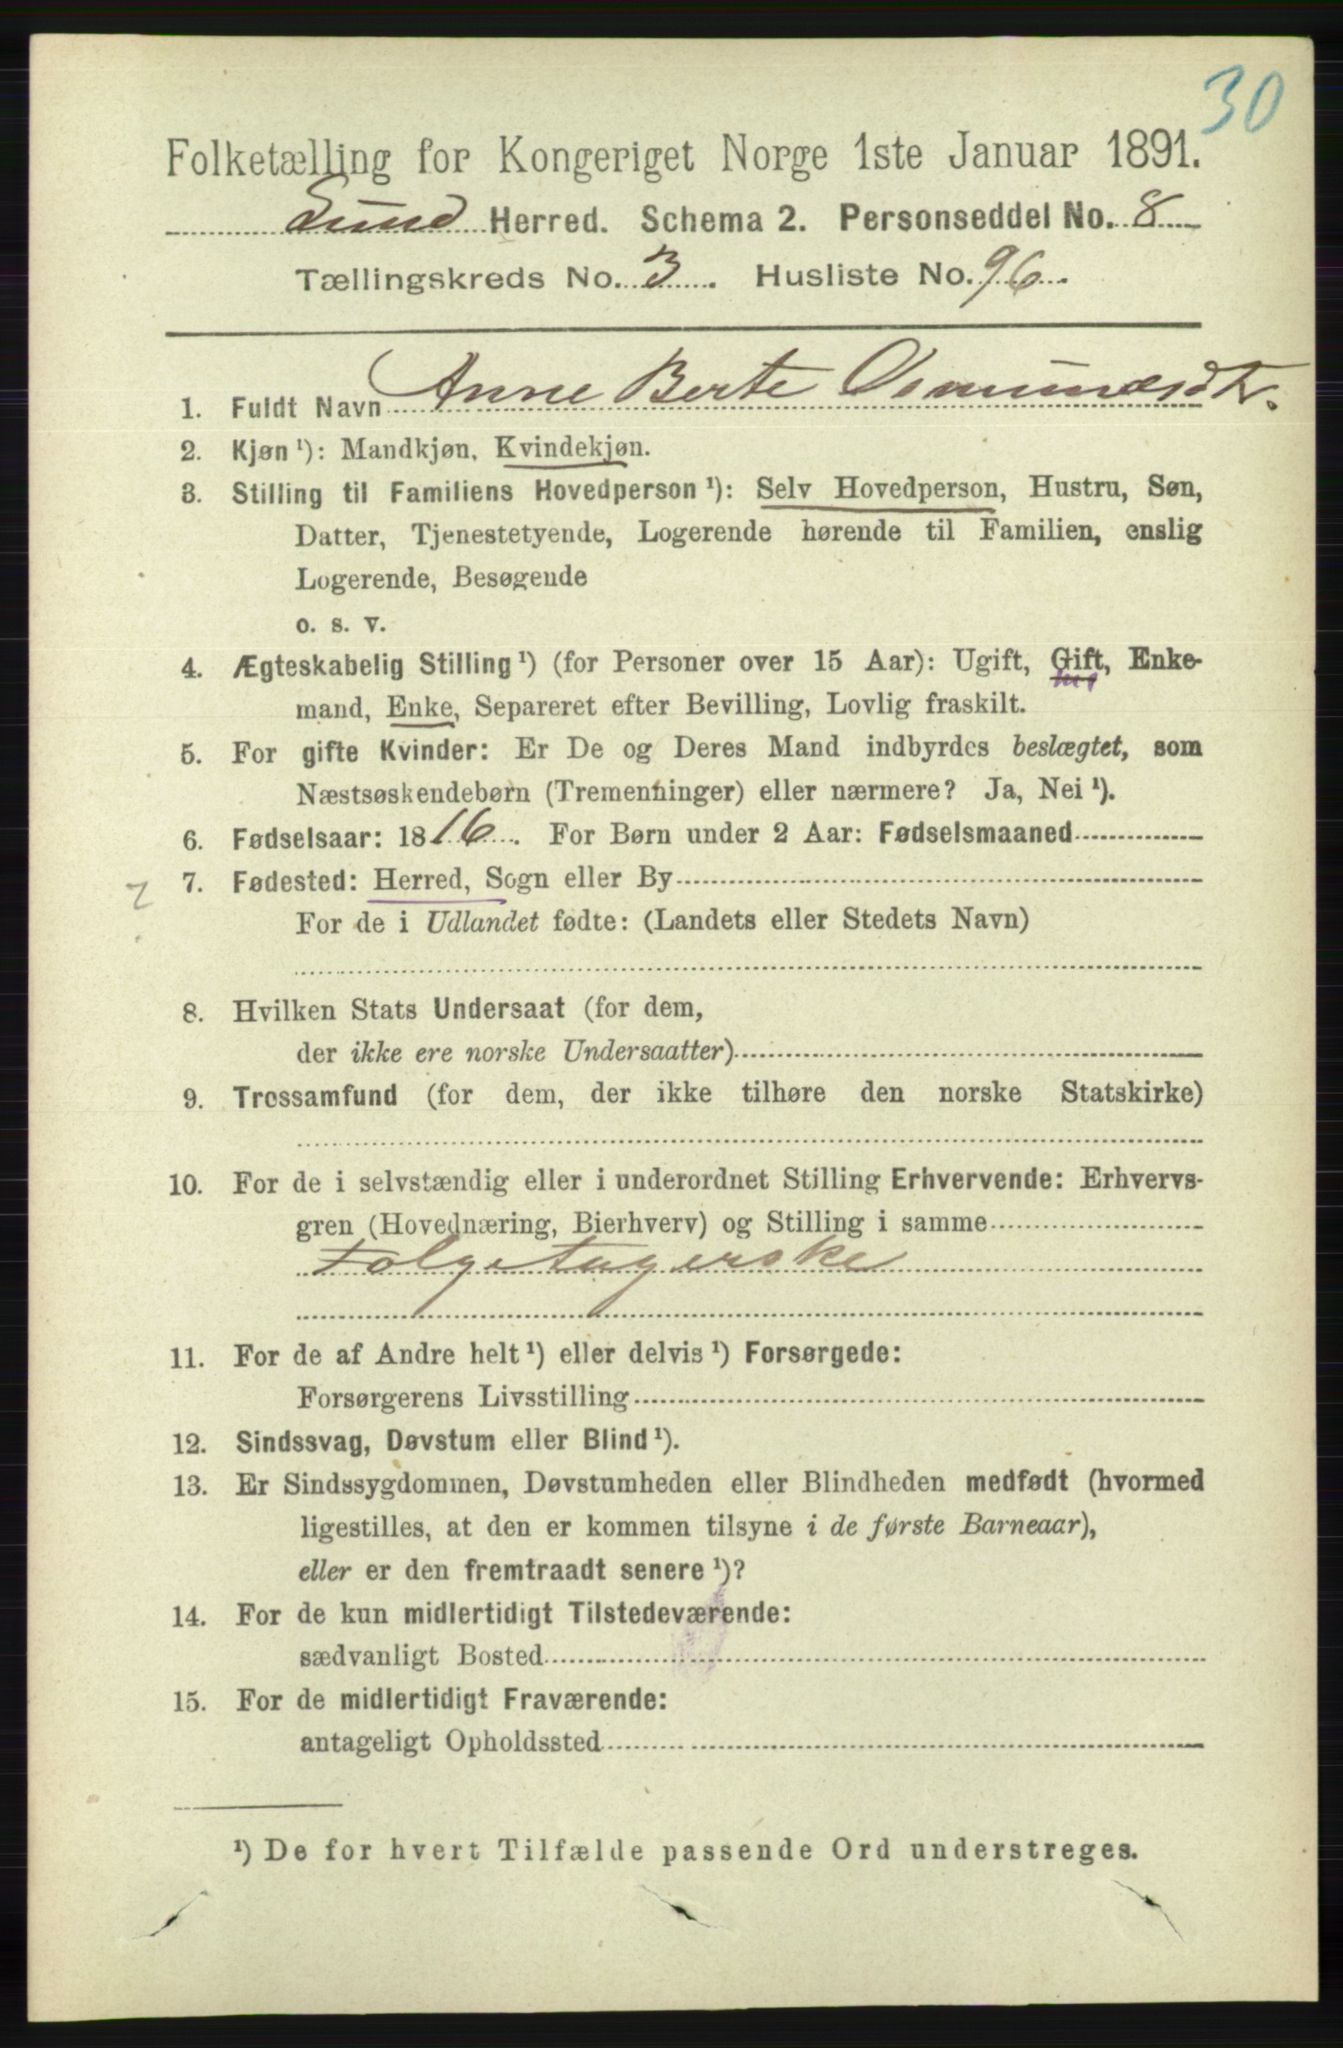 30
Folketælling for Kongeriget Norge 1ste Januar 1891.
Lund Herred. Schema 2. Personseddel No. 8
Tællingskreds No. 3. Husliste No. 96.
1. Fuldt Navn Anne Berte Osmundsdtr.
2. Kjøn ¹): Mandkjøn, Kvindekjøn.
3. Stilling til Familiens Hovedperson ¹): Selv Hovedperson, Hustru, Søn,
Datter, Tjenestetyende, Logerende hørende til Familien, enslig
Logerende, Besøgende
o. s. v.
4. Ægteskabelig Stilling ¹) (for Personer over 15 Aar): Ugift, Gift, Enke-
mand, Enke, Separeret efter Bevilling, Lovlig fraskilt.
5. For gifte Kvinder: Er De og Deres Mand indbyrdes beslægtet, som
Næstsøskendebørn (Tremenninger) eller nærmere? Ja, Nei ¹).
6. Fødselsaar: 1816. For Børn under 2 Aar: Fødselsmaaned
7. Fødested: Herred, Sogn eller By
For de i Udlandet fødte: (Landets eller Stedets Navn)
8. Hvilken Stats Undersaat (for dem,
der ikke ere norske Undersaatter)
9. Trossamfund (for dem, der ikke tilhøre den norske Statskirke)
10. For de i selvstændig eller i underordnet Stilling Erhvervende: Erhvervs-
gren (Hovednæring, Bierhverv) og Stilling i samme
Folgetagerske
11. For de af Andre helt ¹) eller delvis ¹) Forsørgede:
Forsørgerens Livsstilling
12. Sindssvag, Døvstum eller Blind ¹).
13. Er Sindssygdommen, Døvstumheden eller Blindheden medfødt (hvormed
ligestilles, at den er kommen tilsyne i de første Barneaar),
eller er den fremtraadt senere ¹)?
14. For de kun midlertidigt Tilstedeværende:
sædvanligt Bosted
15. For de midlertidigt Fraværende:
antageligt Opholdssted
¹) De for hvert Tilfælde passende Ord understreges.